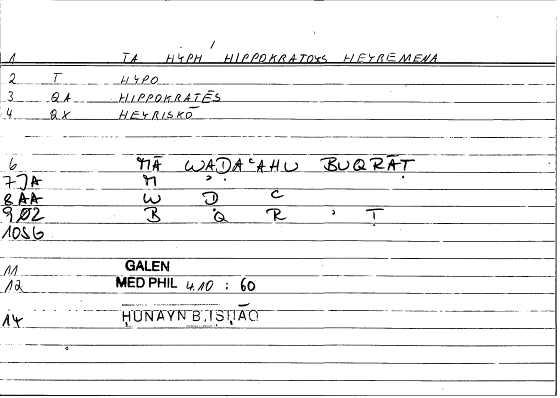 1 TA HYPH' HIPPOKRATOYS HEYREMENA
2 T HYPO
3 QA HIPPOKRATĒS
4 QX HEYRISKŌ
6 MĀ WAḌAʿAHU BUQRĀṬ
7 JA M ʾ
8 AA W Ḍ C
9 02 B Q R ʾ Ṭ
10 SG
11 GALEN
12 MED PHIL 4.10 : 60
14 ḤUNAYN B. ISḤĀQ